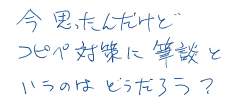 今思ったんだけど
コピペ対策に筆談と
いうのはどうだろう?